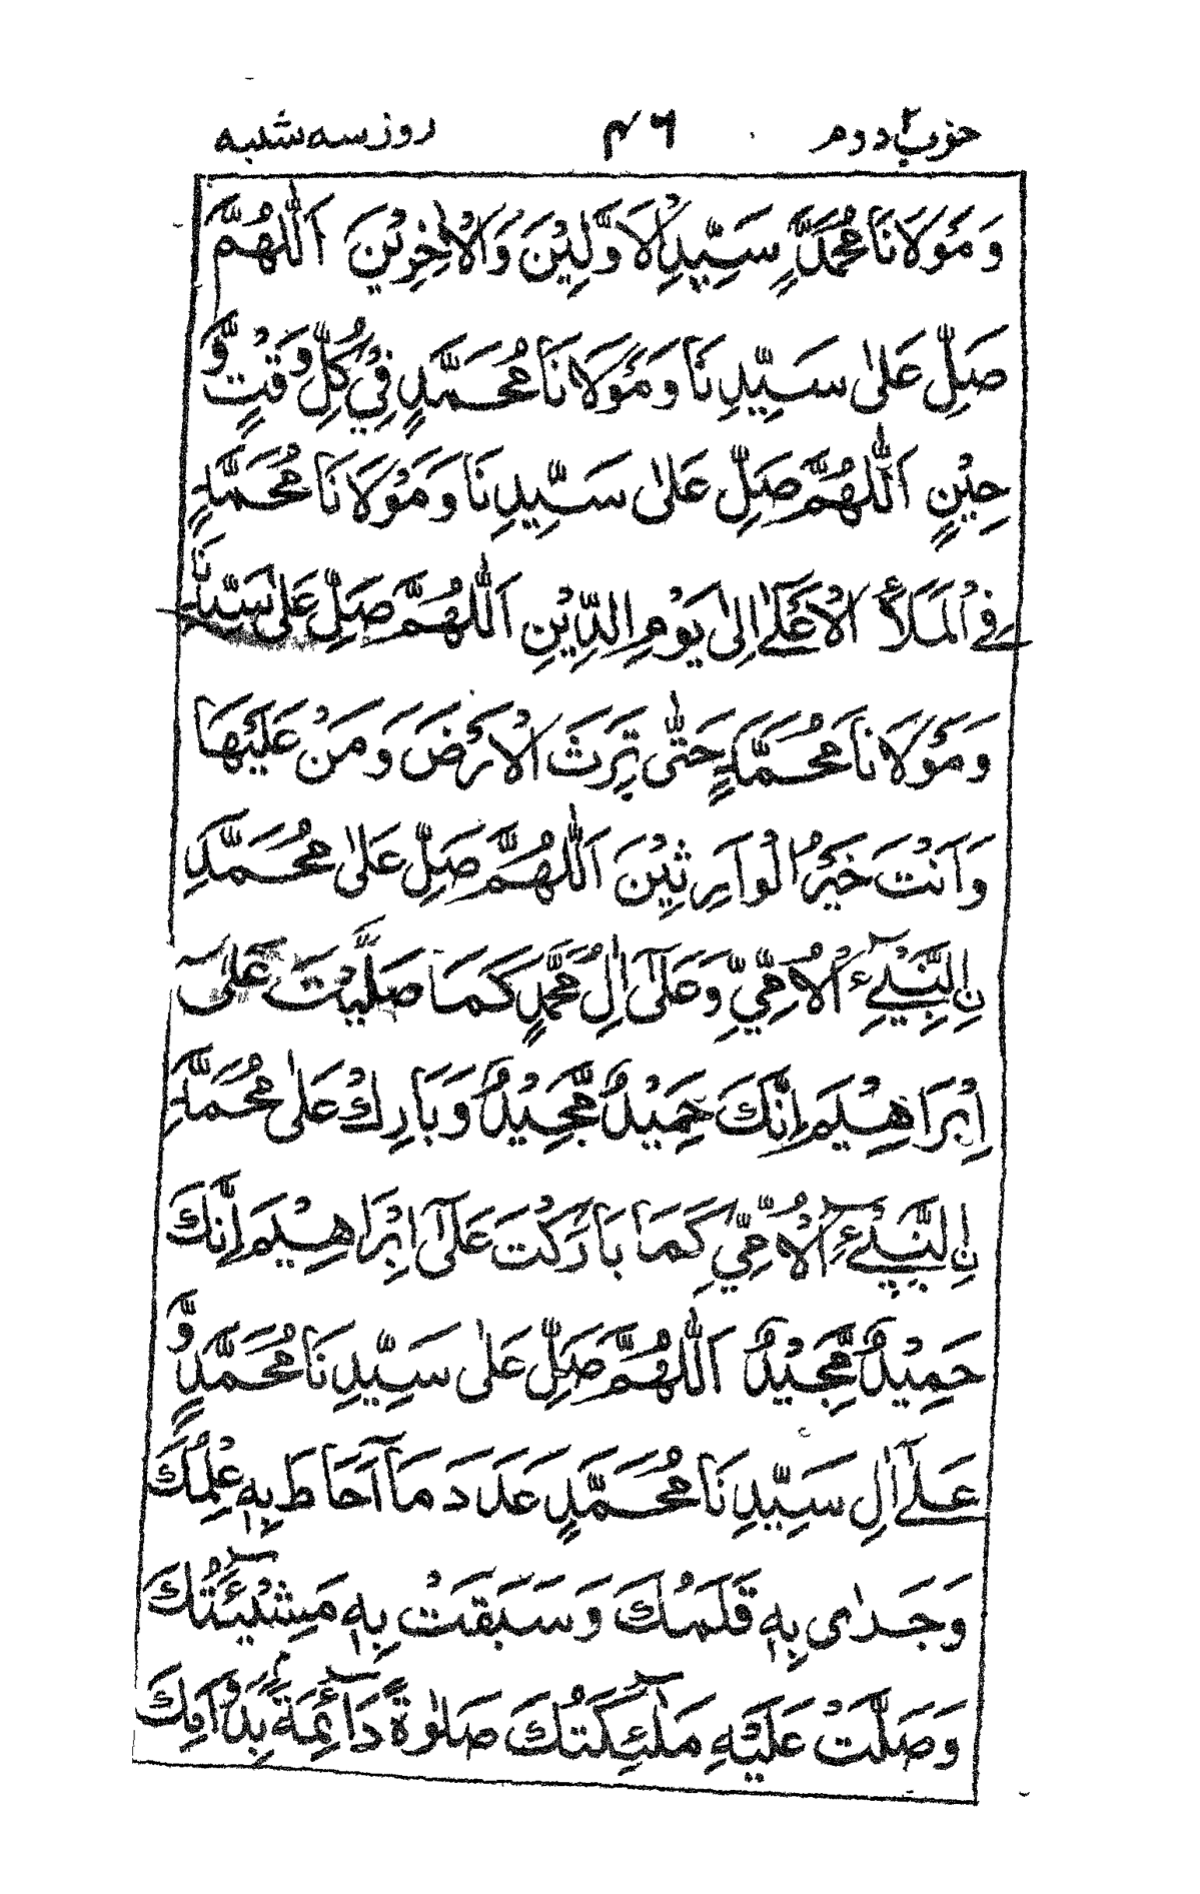 حزب دوم ۴۶ روز سه شنبه
وَمَوْلَانَا مُحَمَّدٍ سَيِّدِ الْاَوَّلِيْنَ وَالْاٰخِرِيْنَ اَللّٰهُمَّ
صَلِّ عَلٰى سَيِّدِنَا وَمَوْلَانَا مُحَمَّدٍ فِيْ كُلِّ وَقْتٍ وَّ
حِيْنٍ اَللّٰهُمَّ صَلِّ عَلٰى سَيِّدِنَا وَمَوْلَانَا مُحَمَّدٍ
فِے الْمَلَأِ الْاَعْلٰٓے اِلٰى يَوْمِ الدِّيْنِ اَللّٰهُمَّ صَلِّ عَلٰى سَيِّدِنَا
وَمَوْلَانَا مُحَمَّدٍ حَتّٰى تَرِثَ الْاَرْضَ وَمَنْ عَلَيْهَا
وَاَنْتَ خَيْرُ الْوَارِثِيْنَ اَللّٰهُمَّ صَلِّ عَلٰى مُحَمَّدِ
نِ النَّبِيِّ الْاُمِّيِّ وَعَلٰٓى اٰلِ مُحَمَّدٍ كَمَا صَلَّيْتَ عَلٰٓى
اِبْرَاهِيْمَ اِنَّكَ حَمِيْدٌ مَّجِيْدٌ وَبَارِكْ عَلٰى مُحَمَّدِ
نِ النَّبِيِّ الْاُمِّيِّ كَمَا بَارَكْتَ عَلٰٓى اِبْرَاهِيْمَ اِنَّكَ
حَمِيْدٌ مَّجِيْدٌ اَللّٰهُمَّ صَلِّ عَلٰى سَيِّدِنَا مُحَمَّدٍ وَّ
عَلٰٓے اٰلِ سَيِّدِنَا مُحَمَّدٍ عَدَدَ مَآ اَحَاطَ بِهٖ عِلْمُكَ
وَجَرٰى بِهٖ قَلَمُكَ وَسَبَقَتْ بِهٖ مَشِيْئَتُكَ
وَصَلَّتْ عَلَيْهِ مَلٰٓئِكَتُكَ صَلٰوةً دَآئِمَةً بِدَوَامِكَ